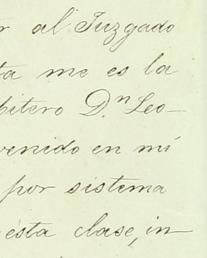 r al Juzgado
ta me es la
bitero D.n Leo-
venido en mí
por sistema
esta clase, in-